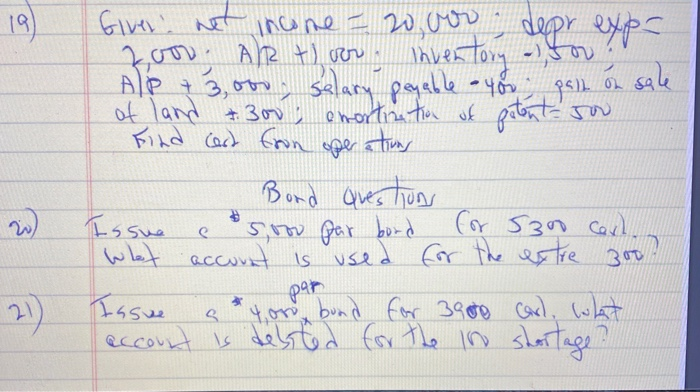 19) Given: net income = 20,000; depr exp =
2,000; A/R +1,000; inventory -1,500;
A/P + 3,000; salary payable -400; gain on sale
of land + 300; amortization of patent = 500
Find cash from operations
Bond Questions
20) Issue a $5,000 par bond for 5300 cash.
What account is used for the extra 300?
par
21) Issue a $4,000 x bond for 3900 cash. What
account is debited for the 100 shortage?